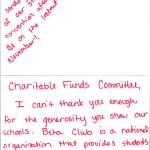 of our
convention
Be on the lookout
November!
Charitable Funds Committee,
I can't thank you enough
for the generosity you show our
schools. Beta Club is a national
organization that provides students